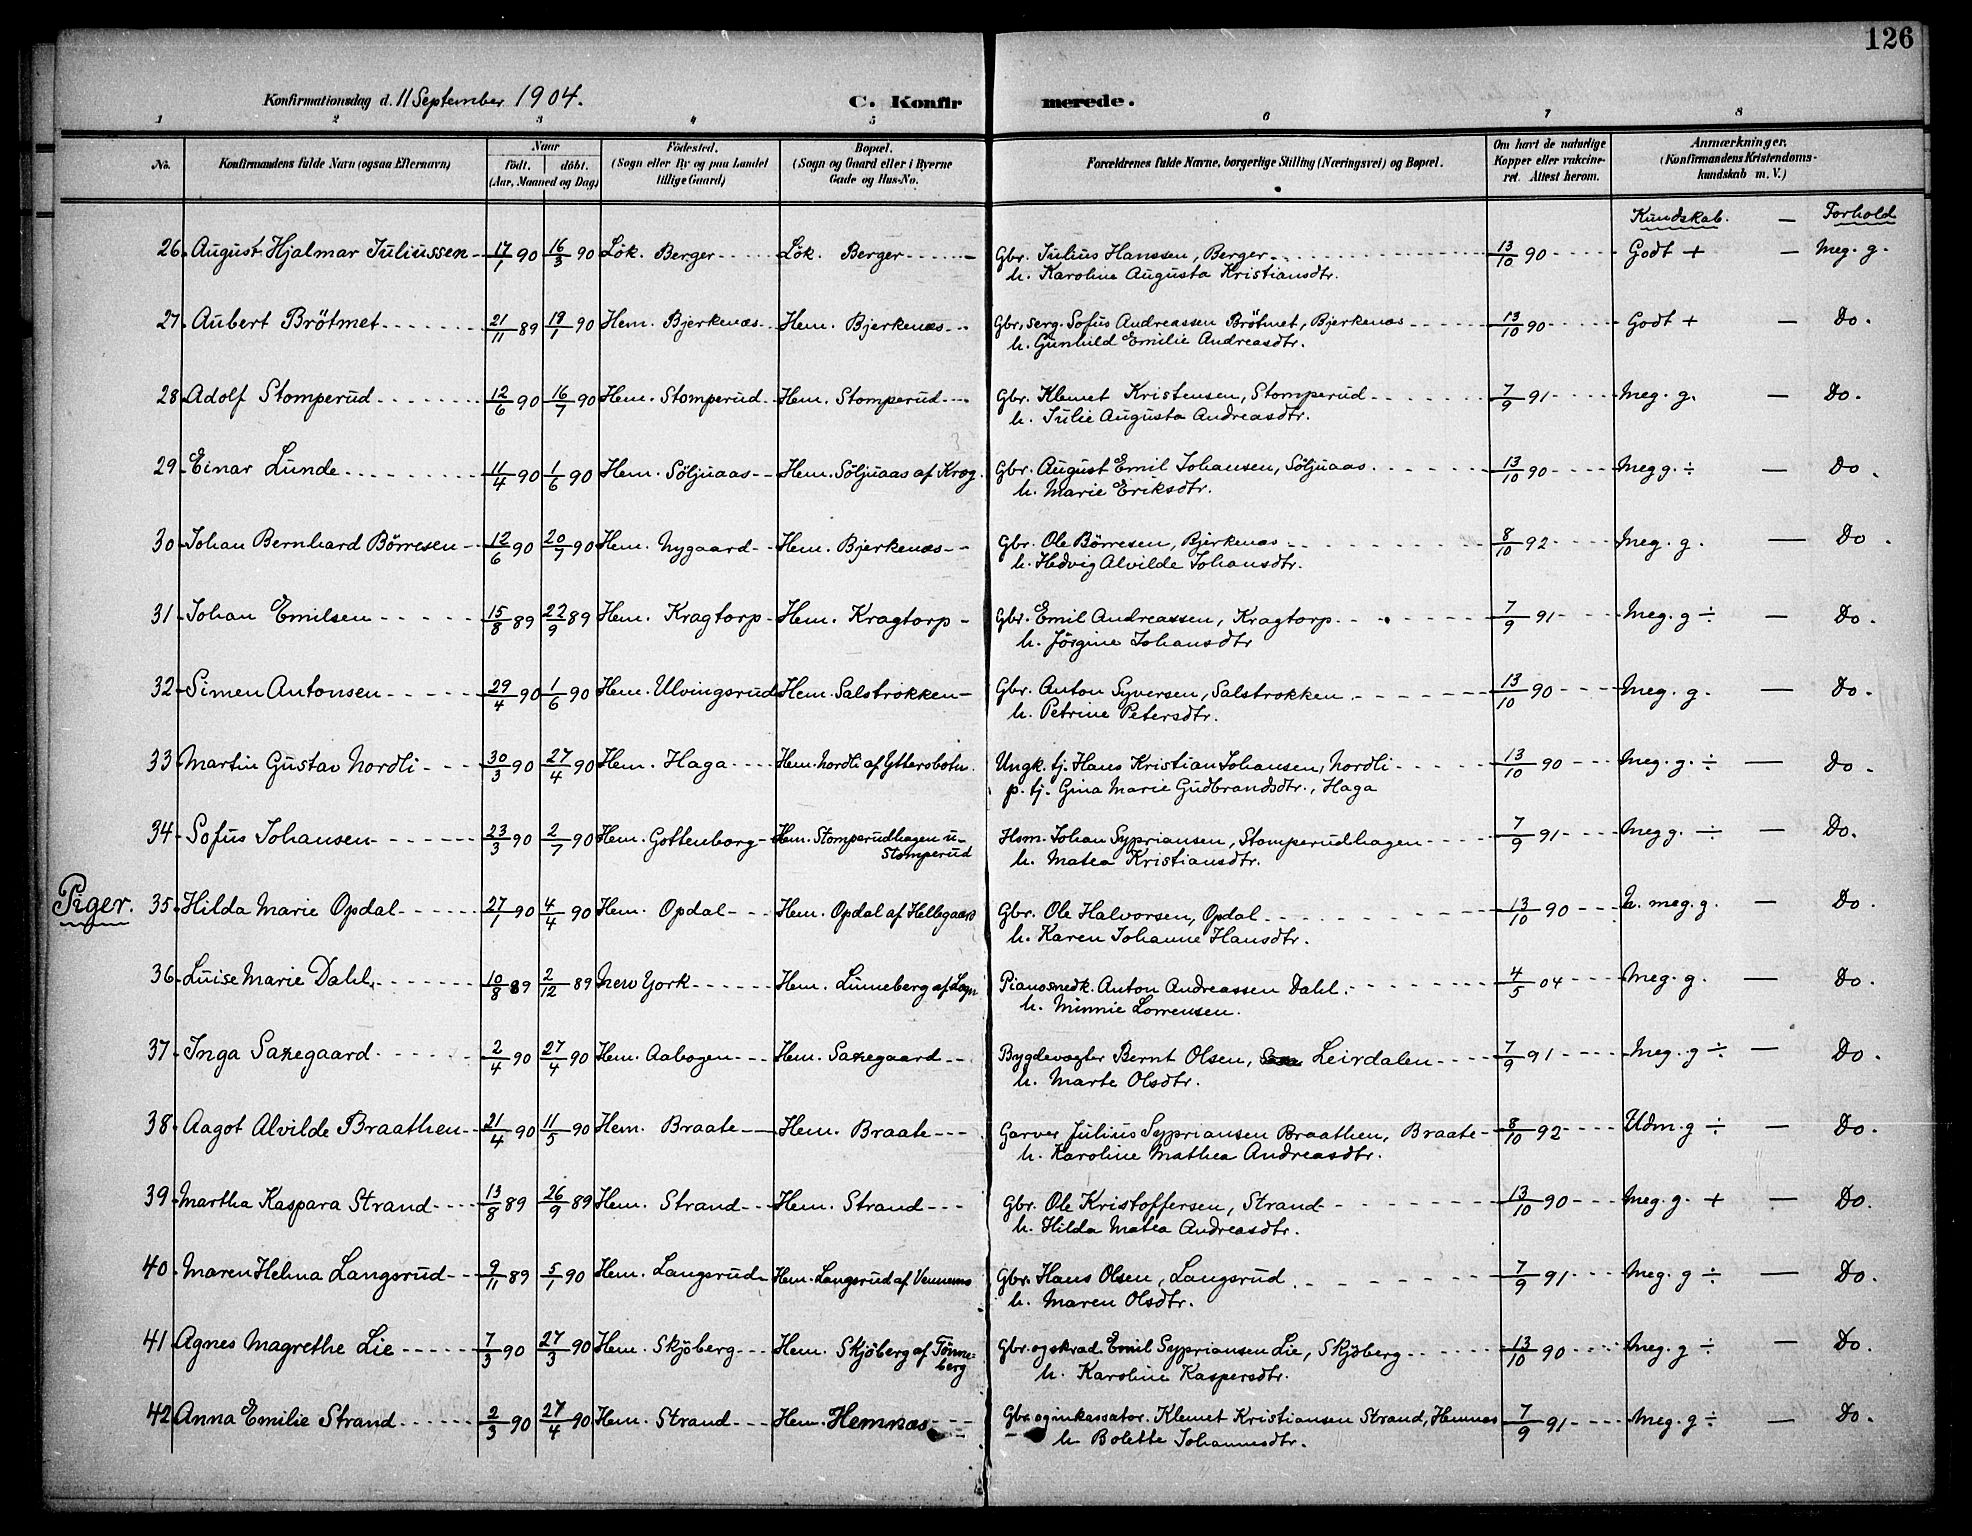 126
Konfirmationsdag d. 11 September 1904. C. Konfirmerede.
1 2 3 4 5 6 7 8
No. Konfirmandens fulde Navn (ogsaa Efternavn) Naar født. døbt. (Aar, Maaned og Dag) Fødested. (Sogn eller By og paa Landet tillige Gaard) Bopæl. (Sogn og Gaard eller i Byerne Gade og Hus-No. Forældrenes fulde Navne, borgerlige Stilling (Næringsvei) og Bopæl. Om havt de naturlige Kopper eller vakcineret. Attest herom. Anmærkninger. (Konfirmandens Kristendomskundskab m. V.)
Kundskab. — Forhold
26. August Hjalmar Juliussen 17/1 90 16/3 90 Løk. Berger Løk. Berger Gbr. Julius Hanssen, Berger 13/10 90 Godt + — Meg. g.
h. Karoline Augusta Kristiansdtr.
27. Aubert Brötmet 21/11 89 19/1 90 Hem. Bjerkenæs Hem. Bjerkenæs Gbr. serg. Sofus Andreassen Brötmet, Bjerkenæs 13/10 90 Godt + — Do.
h. Gunhild Emilie Andreasdtr.
28. Adolf Stomperud 12/6 90 16/7 90 Hem. Stomperud Hem. Stomperud Gbr. Klemet Kristensen, Stomperud 7/9 91 Meg. g. — Do.
h. Julie Augusta Andreasdtr.
29. Einar Lunde 11/4 90 1/6 90 Hem. Söljuaas Hem. Söljuaas af Krog. Gbr. August Emil Johansen, Söljuaas 13/10 90 Meg g. ÷ — Do.
h. Marie Eriksdtr.
30. Johan Bernhard Börresen 12/6 90 20/7 90 Hem. Nygaard Hem. Bjerkenæs Gbr. Ole Börresen, Bjerkenæs 8/10 92 Meg. g. — Do.
h. Hedvig Alvilde Johansdtr.
31. Johan Emilsen 15/8 89 22/9 89 Hem. Kragtorp Hem. Kragtorp Gbr. Emil Andreassen, Kragtorp 7/9 91 Meg. g ÷ — Do.
h. Jörgine Johansdtr
32. Simen Antonsen 29/4 90 1/6 90 Hem. Ulvingsrud Hem. Salstrokken Gbr. Anton Syversen, Salstrokken 13/10 90 Meg. g. — Do.
h. Petrine Petersdtr.
33. Martin Gustav Nordli 30/3 90 27/4 90 Hem. Haga Hem. Nordli af Yttersbotn. Ungk. tj. Hans Kristian Johansen, Nordli 13/10 90 Meg. g. ÷ — Do.
p. tj. Gina Marie Gudbrandsdtr., Haga
34. Sofus Johansen 23/3 90 2/7 90 Hem. Gottenborg Hem. Stomperudhagen u. Stomperud Hsm. Johan Syprianssen, Stomperudhagen 7/9 91 Meg g. ÷ — Do.
h. Matea Kristiansdtr.
Piger. 35. Hilda Marie Opdal 27/1 90 4/4 90 Hem. Opdal Hem. Opdal af Hellegaard Gbr. Ole Halvorsen, Opdal 13/10 90 N. meg. g. — Do.
h. Karen Johanne Hansdtr.
36. Luise Marie Dahl. 10/8 89 2/12 89 New York Hem. Luneberg af Logn Pianosnedk. Anton Andreassen Dahl. 4/5 04 Meg. g. — Do.
h. Minnie Lorrensen.
37. Inga Saxegaard 2/4 90 27/4 90 Hem. Aabogen Hem. Saxegaard Bygdevogter Bernt Olsen, Leirdalen 7/9 91 Meg. g ÷ — Do.
h. Marte Olsdtr.
38. Aagot Alvilde Braathen 21/4 90 11/5 90 Hem. Braate Hem. Braate Garver Julius Sypriansen Braathen, Braate 8/10 92 Udm. g ÷ — Do.
h. Karoline Mathea Andreasdtr.
39. Martha Kaspara Strand 13/8 89 26/9 89 Hem. Strand Hem. Strand Gbr. Ole Kristoffersen, Strand 13/10 90 Meg. g. + — Do.
h. Hilda Matea Andreasdtr.
40. Maren Helma Langsrud 9/11 89 5/1 90 Hem. Langsrud Hem. Langsrud af Vennems Gbr. Hans Olsen, Langsrud 7/9 91 Meg. g ÷ — Do.
h. Maren Olsdtr.
41. Agnes Magrethe Lie 7/3 90 27/3 90 Hem. Skjöberg Hem. Skjöberg af Tönneberg Gbr. og skræd. Emil Sypriansen Lie, Skjöberg 13/10 90 Meg. g ÷ — Do.
h. Karoline Kaspersdtr.
42. Anna Emilie Strand 2/3 90 27/4 90 Hem. Strand Hem. Hemnæs Gbr. og inkassator. Klemet Kristiansen Strand, Hemnæs 7/9 91 Meg. g ÷ — Do.
h. Bolette Johannesdtr.